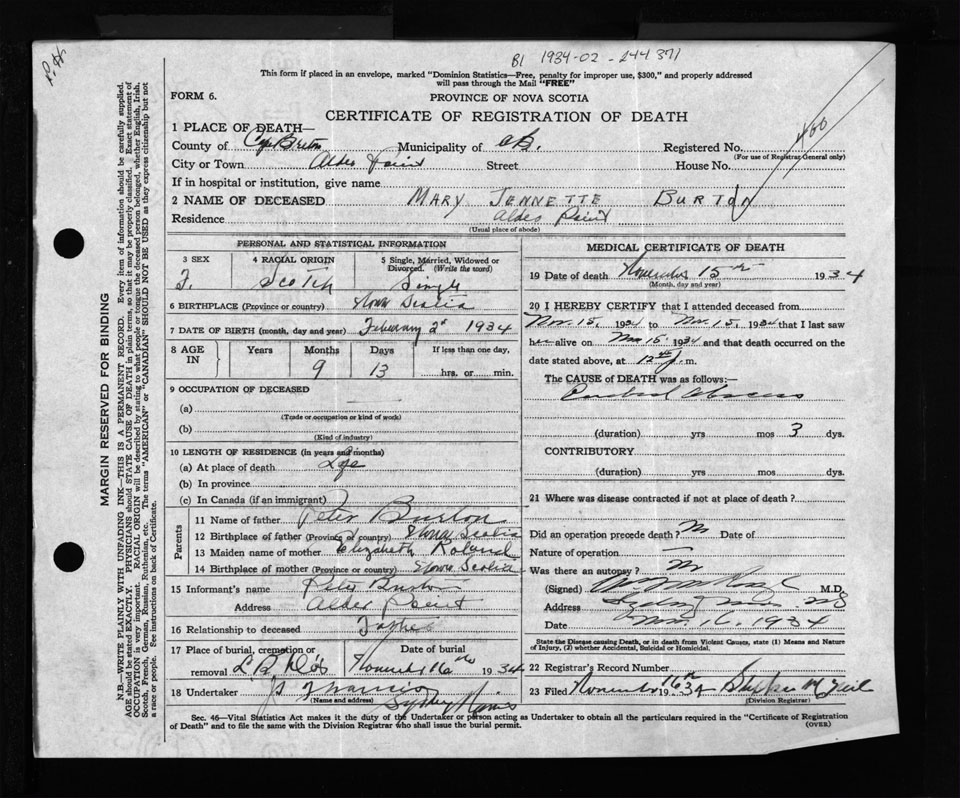 B1 1934-02-244371
This form if placed in an envelope, marked "Dominion Statistics—Free, penalty for improper use, $300," and properly addressed
will pass through the Mail "FREE"
FORM 6.
PROVINCE OF NOVA SCOTIA
CERTIFICATE OF REGISTRATION OF DEATH
1 PLACE OF DEATH—
County of Cape Breton Municipality of C.B. Registered No. 460
(For use of Registrar General only)
City or Town Alder Point Street House No.
If in hospital or institution, give name
2 NAME OF DECEASED MARY JENNETTE BURTON
Residence Alder Point
(Usual place of abode)
PERSONAL AND STATISTICAL INFORMATION
3 SEX 4 RACIAL ORIGIN 5 Single, Married, Widowed or Divorced. (Write the word)
F. Scotch Single
6 BIRTHPLACE (Province or country) Nova Scotia
7 DATE OF BIRTH (month, day and year) February 2nd 1934
8 AGE IN Years Months Days If less than one day,
9 13 hrs. or min.
9 OCCUPATION OF DECEASED
(a)
(Trade or occupation or kind of work)
(b)
(Kind of industry)
10 LENGTH OF RESIDENCE (in years and months)
(a) At place of death Life
(b) In province
(c) In Canada (if an immigrant)
Parents
11 Name of father Peter Burton
12 Birthplace of father (Province or country) Nova Scotia
13 Maiden name of mother Elizabeth Roland
14 Birthplace of mother (Province or country) Nova Scotia
15 Informant's name Peter Burton
Address Alder Point
16 Relationship to deceased Father
17 Place of burial, cremation or removal Date of burial
November 16th 1934
18 Undertaker
(Name and address)
Sydney Mines
MEDICAL CERTIFICATE OF DEATH
19 Date of death November 15th 1934
(Month, day and year)
20 I HEREBY CERTIFY that I attended deceased from
Nov. 15, 1934 to Nov. 15, 1934 that I last saw
her alive on Nov 15 1934 and that death occurred on the
date stated above, at m.
The CAUSE of DEATH was as follows:—
Cerebral Abscess
(duration) yrs mos 3 dys.
CONTRIBUTORY
(duration) yrs mos dys.
21 Where was disease contracted if not at place of death?
Did an operation precede death? No Date of
Nature of operation —
Was there an autopsy? No
(Signed) M.D.
Address Sydney Mines N.S.
Date Nov. 16, 1934
State the Disease causing Death, or in death from Violent Causes, state (1) Means and Nature
of Injury, (2) whether Accidental, Suicidal or Homicidal.
22 Registrar's Record Number
23 Filed November 16th 1934
(Division Registrar)
Sec. 46—Vital Statistics Act makes it the duty of the Undertaker or person acting as Undertaker to obtain all the particulars required in the "Certificate of Registration
of Death" and to file the same with the Division Registrar who shall issue the burial permit. (OVER)
MARGIN RESERVED FOR BINDING
N.B.—WRITE PLAINLY WITH UNFADING INK—THIS IS A PERMANENT RECORD. Every item of information should be carefully supplied.
AGE should be stated EXACTLY. PHYSICIANS should STATE CAUSE OF DEATH in plain terms, so that it may be properly classified. Exact statement of
OCCUPATION is very important. RACIAL ORIGIN will be described by stating to what people or tongue the deceased person belonged, whether English, Irish,
Scotch, French, German, Russian, Ruthenian, etc. The terms "AMERICAN" or "CANADIAN" SHOULD NOT BE USED as they express citizenship but not
a race or people. See instructions on back of Certificate.